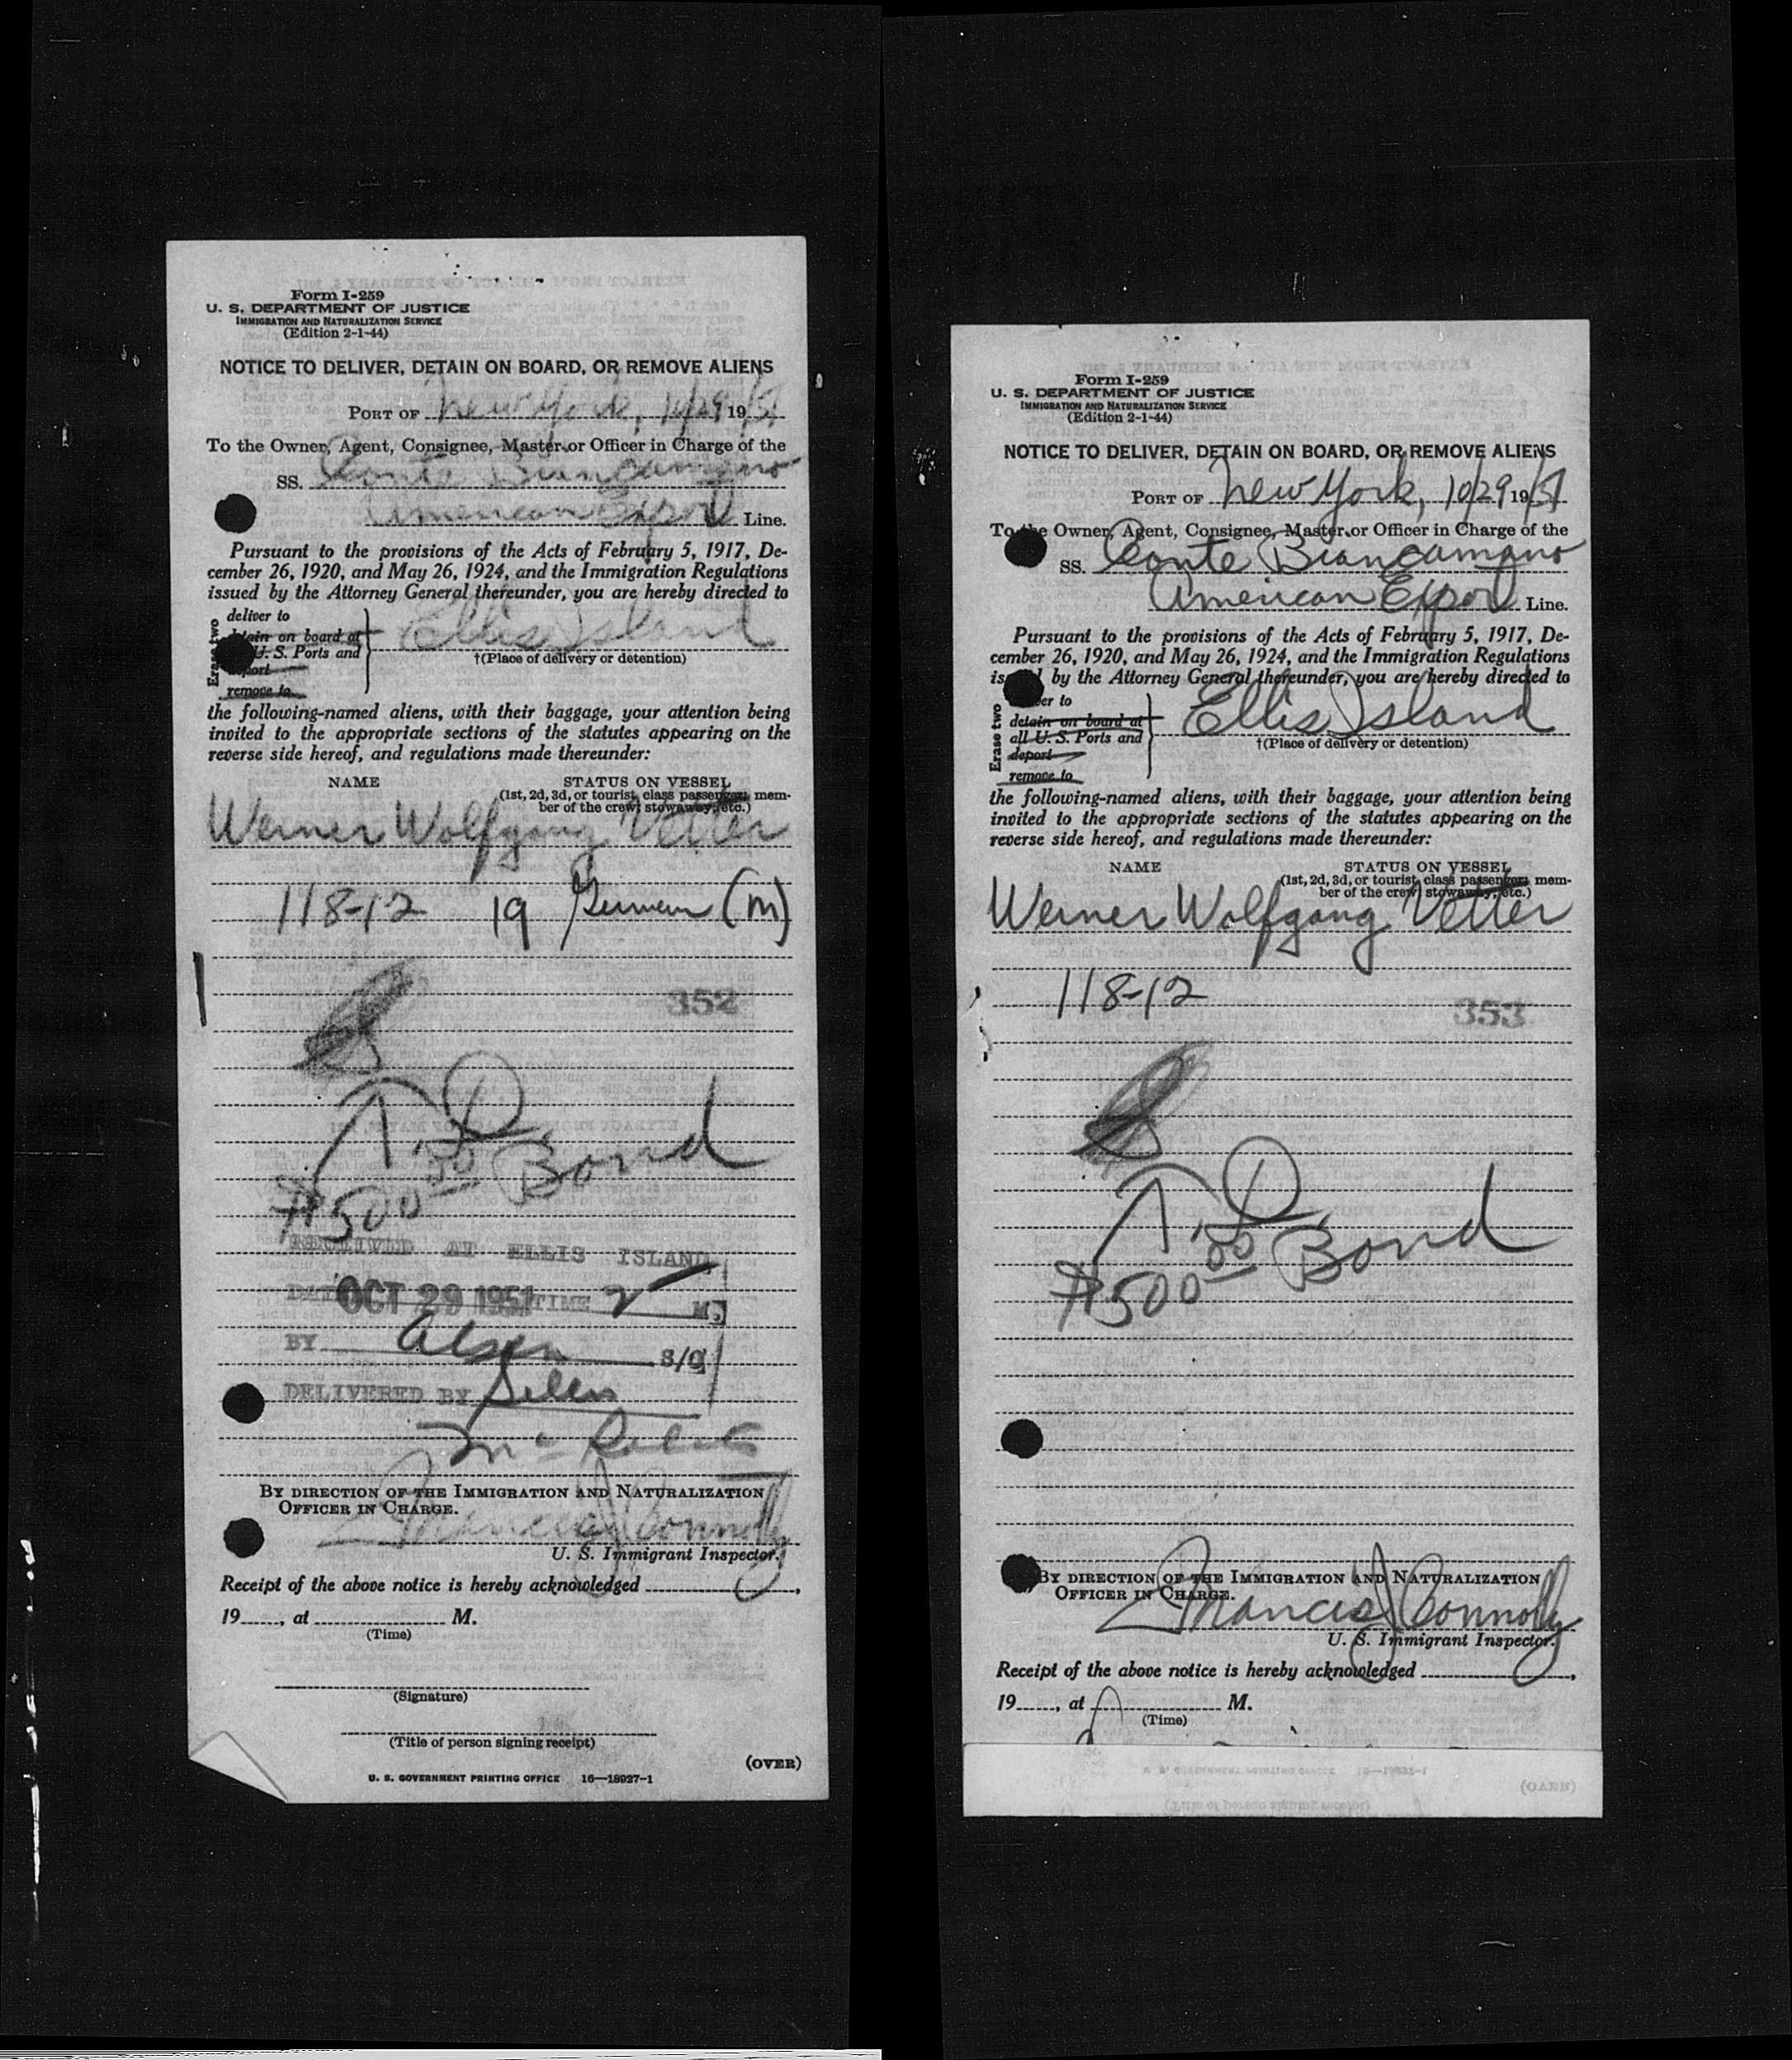 Form I-259
U. S. DEPARTMENT OF JUSTICE
IMMIGRATION AND NATURALIZATION SERVICE
(Edition 2-1-44)
NOTICE TO DELIVER, DETAIN ON BOARD, OR REMOVE ALIENS
PORT OF New York, 10/29 1951
To the Owner, Agent, Consignee, Master or Officer in Charge of the
SS. Conte Biancamano
American Export Line.
Pursuant to the provisions of the Acts of February 5, 1917, De-
cember 26, 1920, and May 26, 1924, and the Immigration Regulations
issued by the Attorney General thereunder, you are hereby directed to
Erase two
deliver to
detain on board at
U. S. Ports and
remove to
Ellis Island
†(Place of delivery or detention)
the following-named aliens, with their baggage, your attention being
invited to the appropriate sections of the statutes appearing on the
reverse side hereof, and regulations made thereunder:
NAME STATUS ON VESSEL
(1st, 2d, 3d, or tourist class passenger; mem-
ber of the crew; stowaway, etc.)
Werner Wolfgang Vetter
118-12 19 German (m)
352
$500 00 Bond
RECEIVED AT ELLIS ISLAND
DATE OCT 29 1951 TIME 2 M.
BY Olsen S/O
DELIVERED BY
By direction of the Immigration and Naturalization
Officer in Charge.
Francis J Connolly
U. S. Immigrant Inspector.
Receipt of the above notice is hereby acknowledged ,
19 , at M.
(Time)
(Signature)
(Title of person signing receipt)
(OVER)
U. S. GOVERNMENT PRINTING OFFICE 16—18927-1
Form I-259
U. S. DEPARTMENT OF JUSTICE
IMMIGRATION AND NATURALIZATION SERVICE
(Edition 2-1-44)
NOTICE TO DELIVER, DETAIN ON BOARD, OR REMOVE ALIENS
PORT OF New York, 10/29 1951
To the Owner, Agent, Consignee, Master or Officer in Charge of the
SS. Conte Biancamano
American Export Line.
Pursuant to the provisions of the Acts of February 5, 1917, De-
cember 26, 1920, and May 26, 1924, and the Immigration Regulations
by the Attorney General thereunder, you are hereby directed to
Erase two
to
detain on board at
all U. S. Ports and
deport
remove to
Ellis Island
†(Place of delivery or detention)
the following-named aliens, with their baggage, your attention being
invited to the appropriate sections of the statutes appearing on the
reverse side hereof, and regulations made thereunder:
NAME STATUS ON VESSEL
(1st, 2d, 3d, or tourist class passenger; mem-
ber of the crew; stowaway, etc.)
Werner Wolfgang Vetter
118-12
353
$500 00 Bond
By direction of the Immigration and Naturalization
Officer in Charge.
Francis J Connolly
U. S. Immigrant Inspector.
Receipt of the above notice is hereby acknowledged ,
19 , at M.
(Time)